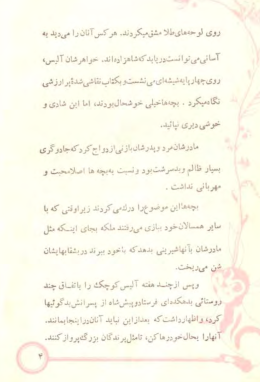 روی لوحه‌های طلا مشق میکردند. هر کس آنان را می‌دید به
آسانی می‌توانست دریابد که شاهزاده‌اند. خواهرشان آلیس،
روی چهارپایه شیشه‌ای می‌نشست و بکتاب نقاشی شدهٔ پر ارزشی
نگاه میکرد . بچه‌ها خیلی خوشحال بودند، اما این شادی و
خوشی دیری نپائید.
مادرشان مرد و پدرشان با زنی ازدواج کرد که جادوگری
بسیار ظالم و بدسرشت بود و نسبت به بچه ها اصلا محبت و
مهربانی نداشت .
بچه‌ها این موضوع را درک می‌کردند زیرا وقتی که با
سایر همسالان خود بازی می‌کردند ملکه بجای اینکه مثل
مادرشان بآنها شیرینی بدهد که با خود ببرند در بشقابهایشان
شن می‌ریخت.
و پس از چند هفته آلیس کوچک را باتفاق چند
روستائی بدهکده‌ای فرستاد و پیش شاه از پسرانش بدگوئیها
کرد، و اظهار داشت که بعد از این نباید آنان در اینجا بمانند.
آنها را بحال خود رها کن، تا مثل پرندگان بزرگ پرواز کنند،
۴